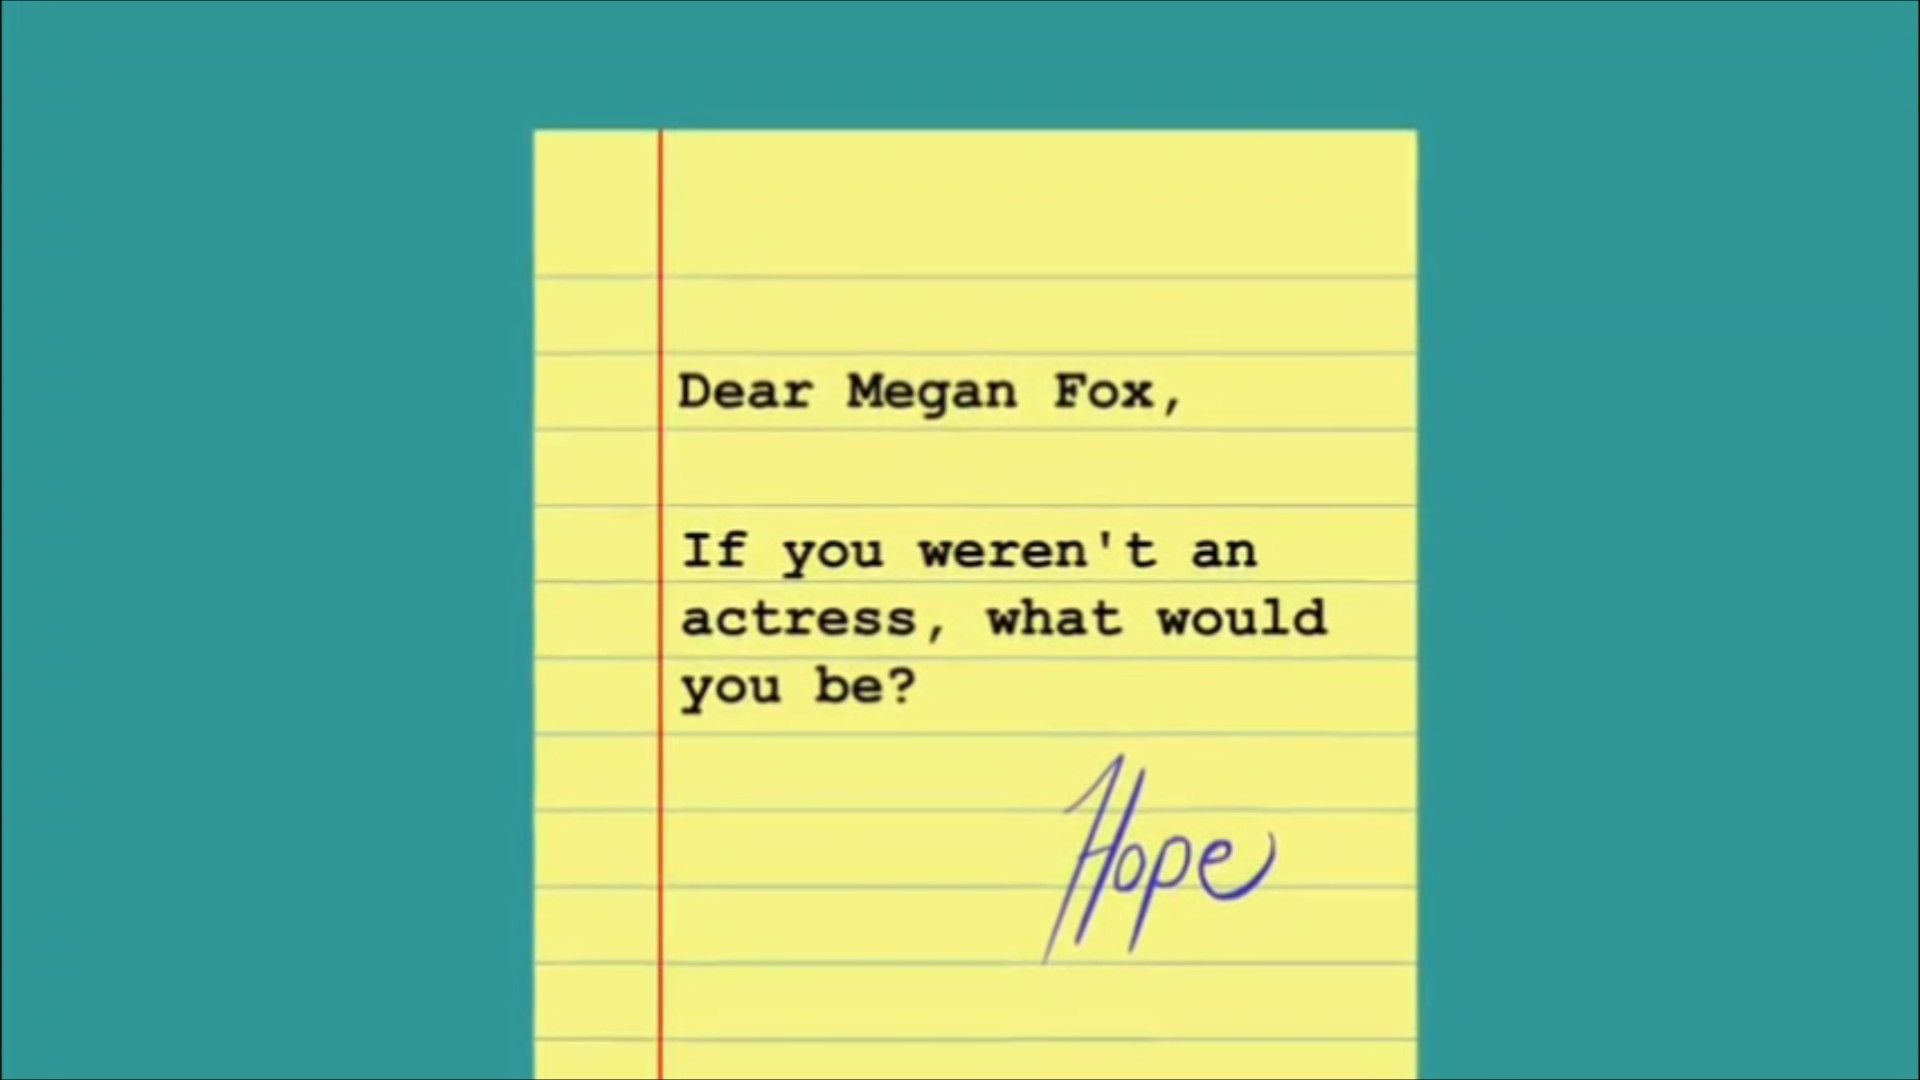 Dear Megan Fox,
If you weren't an
actress, what would
you be?
Hope